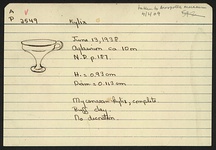 A V
P 2549 Kylix
June 13, 1938.
Agrianon ca. 10m
N.D. p. 187.
H. = 0.093 cm
Diam = 0.112 cm
Mycenaean kylix, complete
Buff clay.
No decoration